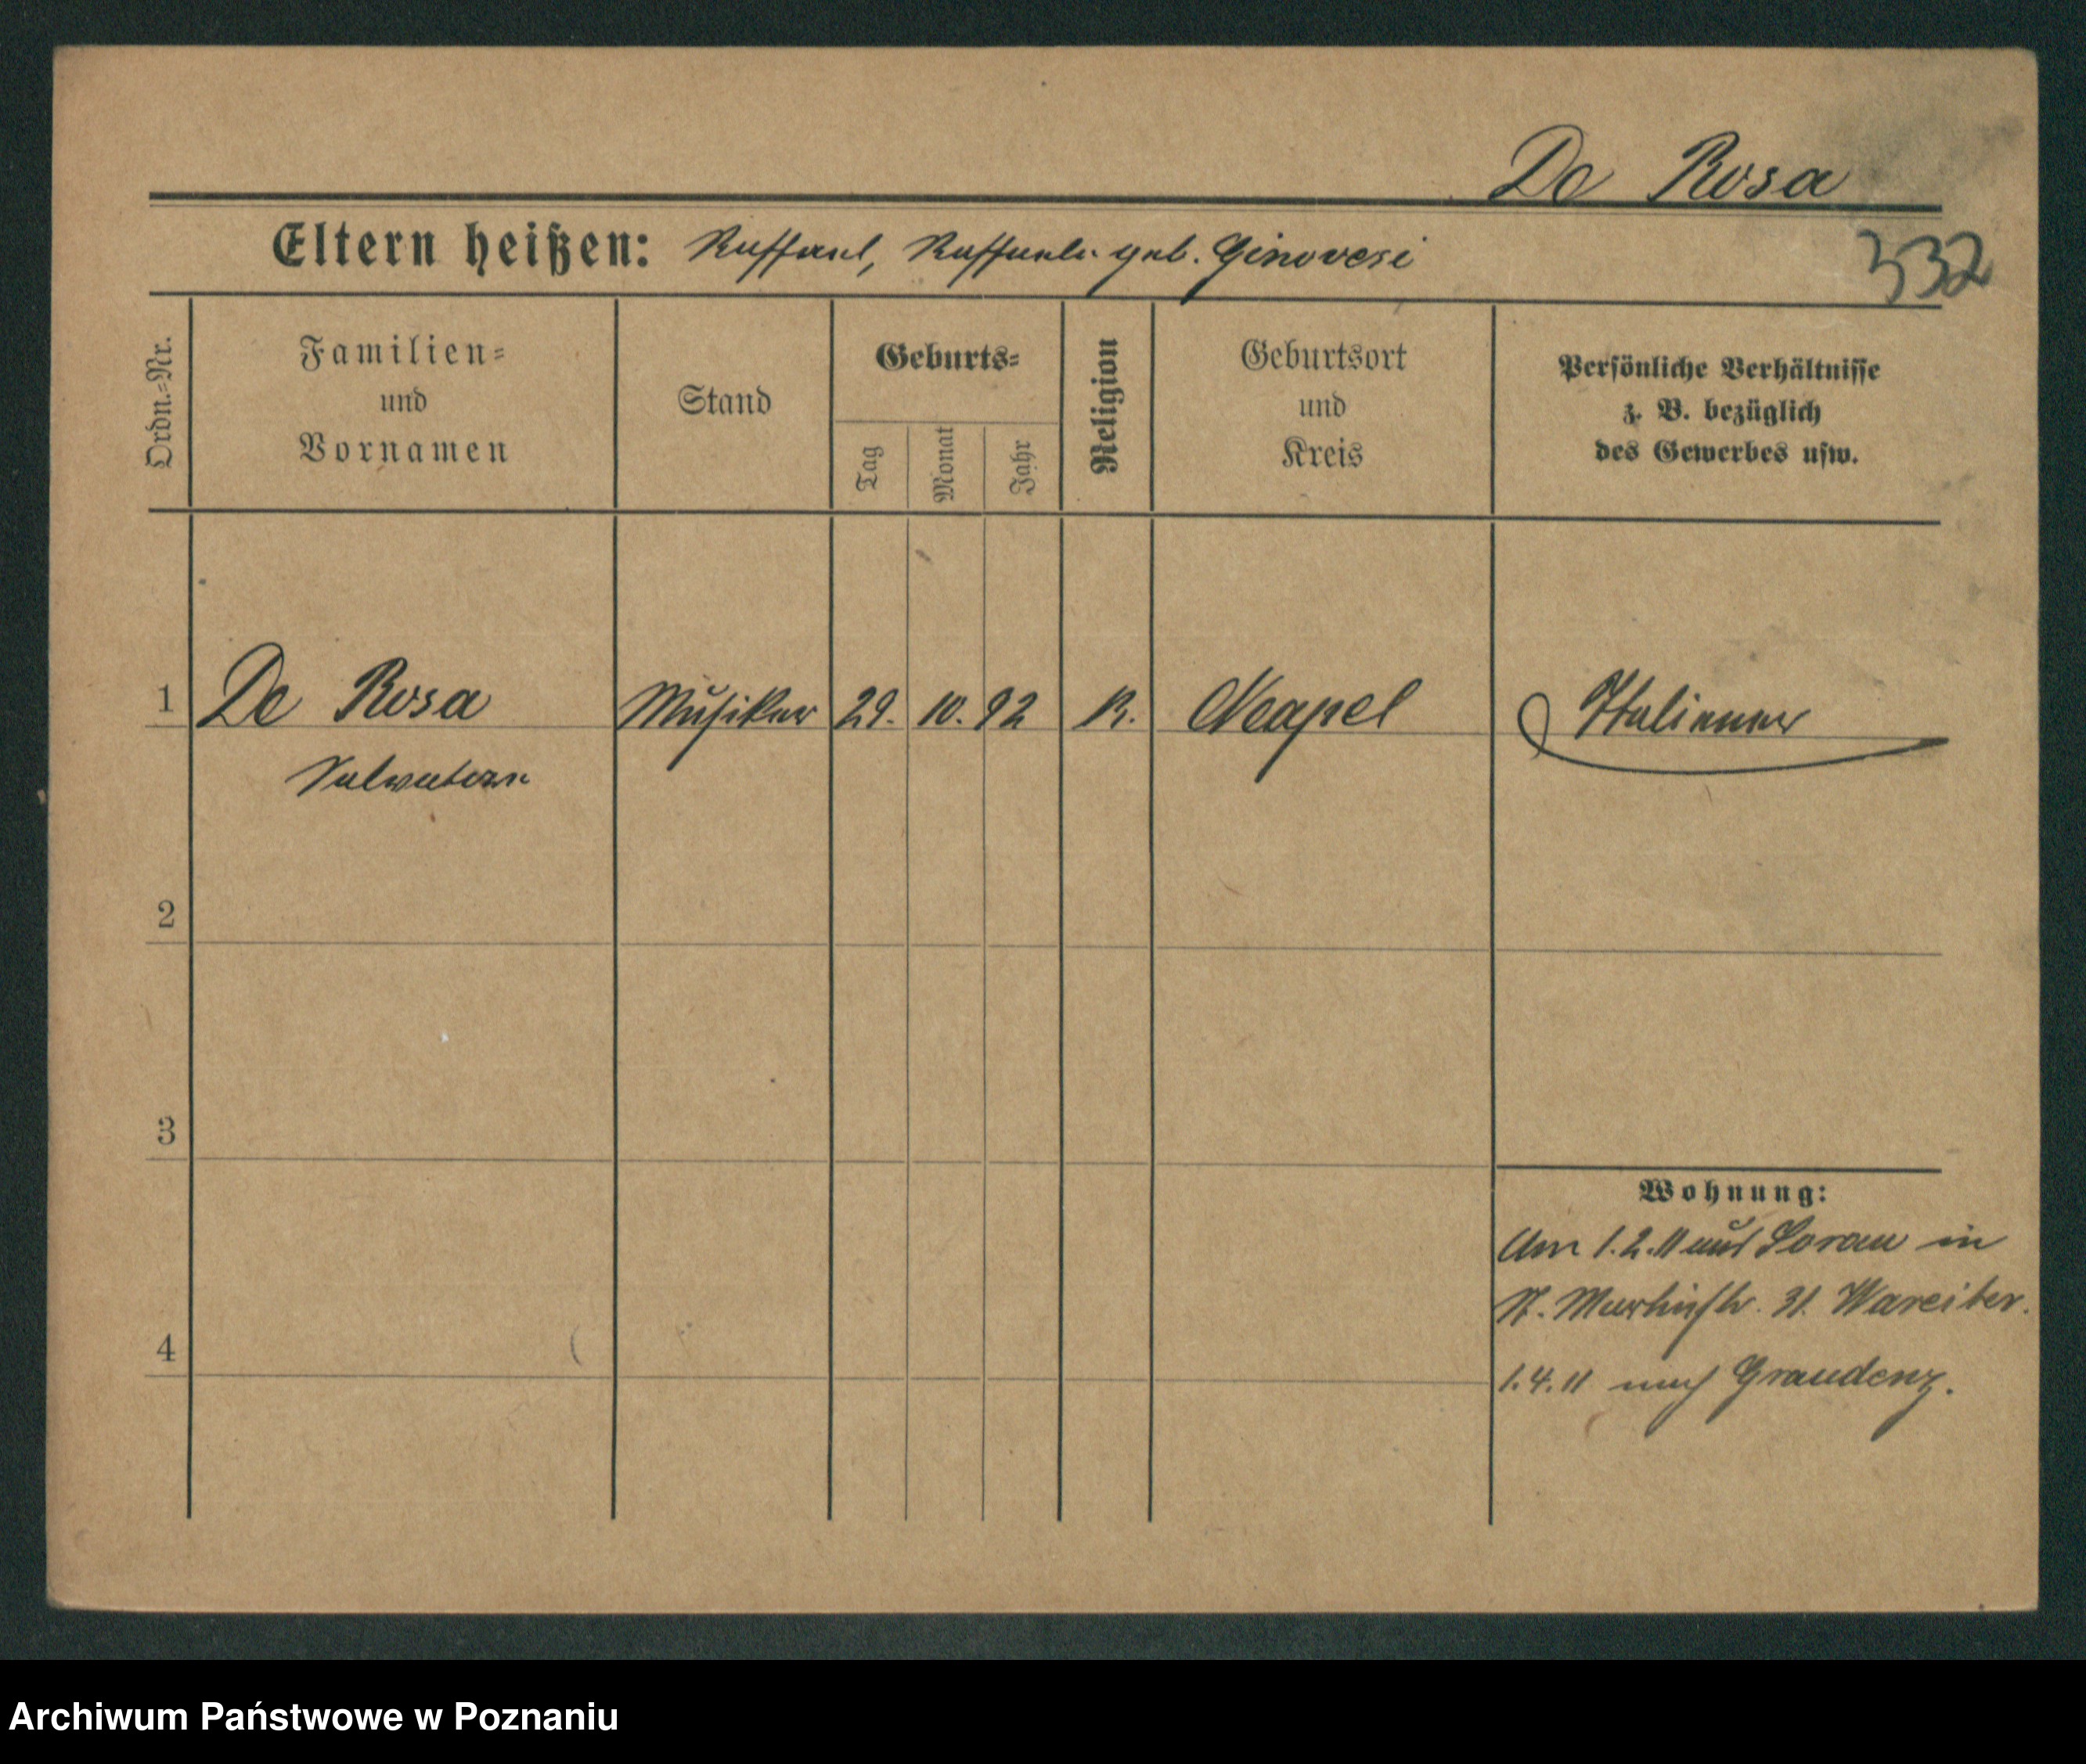 De Rosa
Eltern heißen: Raffael, Raffaele geb. Ginovesi
332
Ordn.-Nr.
Familien-
und
Vornamen
Stand
Geburts-
Tag
Monat
Jahr
Religion
Geburtsort
und
Kreis
Persönliche Verhältnisse
z. B. bezüglich
des Gewerbes usw.
1 De Rosa Musiker 29. 10. 92 R. Neapel Italiener
Salvatore
2
3
4
Wohnung:
Am 1.2.11 aus Sorau in
St. Martinstr. 31. Wareiter.
1.4.11 nach Graudenz.
Archiwum Państwowe w Poznaniu